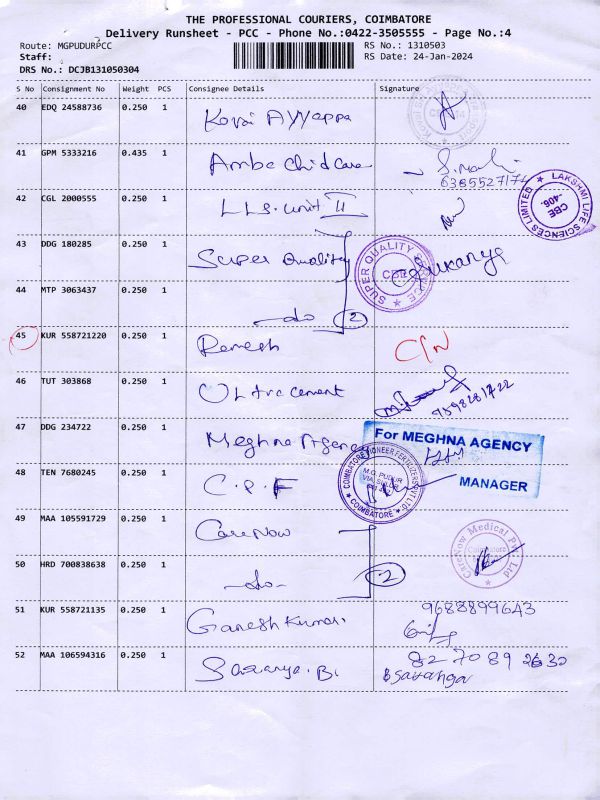 THE PROFESSIONAL COURIERS, COIMBATORE
Delivery Runsheet - PCC - Phone No.:0422-3505555 - Page No.:4
Route: MGPUDURPCC RS No.: 1310503
Staff: RS Date: 24-Jan-2024
DRS No.: DCJB131050304
S No Consignment No Weight PCS Consignee Details Signature
40 EDQ 24588736 0.250 1 Kovai Ayyappa
41 GPM 5333216 0.435 1 Ambe Chid Care
6385527174
42 CGL 2000555 0.250 1 LLS. Unit II
LAKSHMI LIFE SCIENCES LIMITED
CBE
-406.
43 DDG 180285 0.250 1 Super Quality Sukanya
SUPER QUALITY SERVICE
CBE
44 MTP 3063437 0.250 1 -do- 2
45 KUR 558721220 0.250 1 Remesh C/N
46 TUT 303868 0.250 1 Ultra cement
9598281722
47 DDG 234722 0.250 1 Meghna Agency
For MEGHNA AGENCY
MANAGER
48 TEN 7680245 0.250 1 C.P.F
COIMBATORE PIONEER FERTILIZERS PVT LTD
M.G. PUDUR
COIMBATORE
49 MAA 105591729 0.250 1 CareNow
CareNow Medical Pvt. Ltd
Coimbatore
50 HRD 700838638 0.250 1 -do- 2
51 KUR 558721135 0.250 1 Ganesh Kumar. 9688899643
52 MAA 106594316 0.250 1 Saranya. B. 82 7089 2630